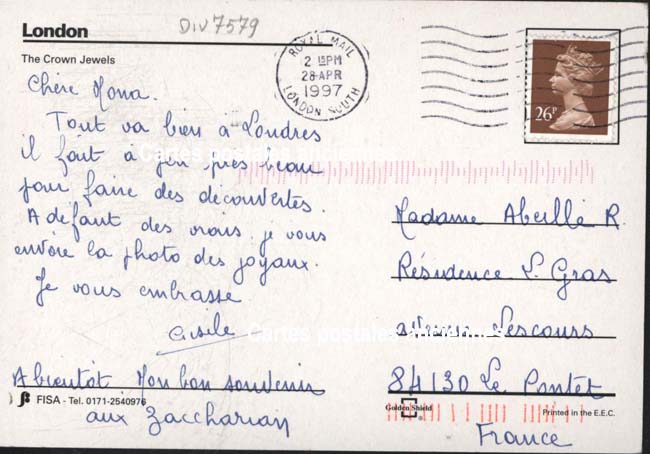 London
DIV 7579
The Crown Jewels
ROYAL MAIL
2 15PM
28 APR
1997
LONDON SOUTH
26P
Chère Mona.
Tout va bien à Londres
il fait à peu près beau
pour faire des découvertes.
A défaut des vrais je vous
envoie la photo des joyaux.
Je vous embrasse
Gisèle
A bientôt Mon bon souvenir
aux Zaccharian
Madame Abeille R.
Résidence L. Gras
Lescours
84130 Le Pontet
France
Cartes postales anciennes
Cartes postales anciennes
FISA - Tel. 0171-2540976
Golden Shield
Printed in the E.E.C.